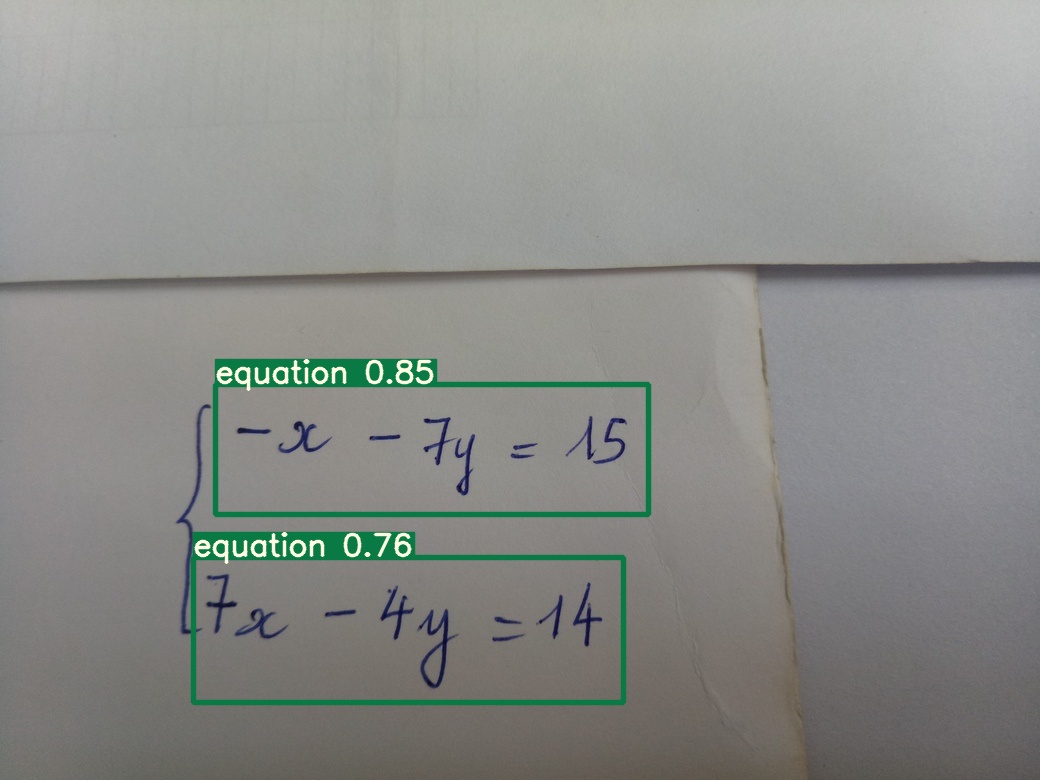 equation 0.85
-x - 7y = 15
equation 0.76
7x - 4y = 14